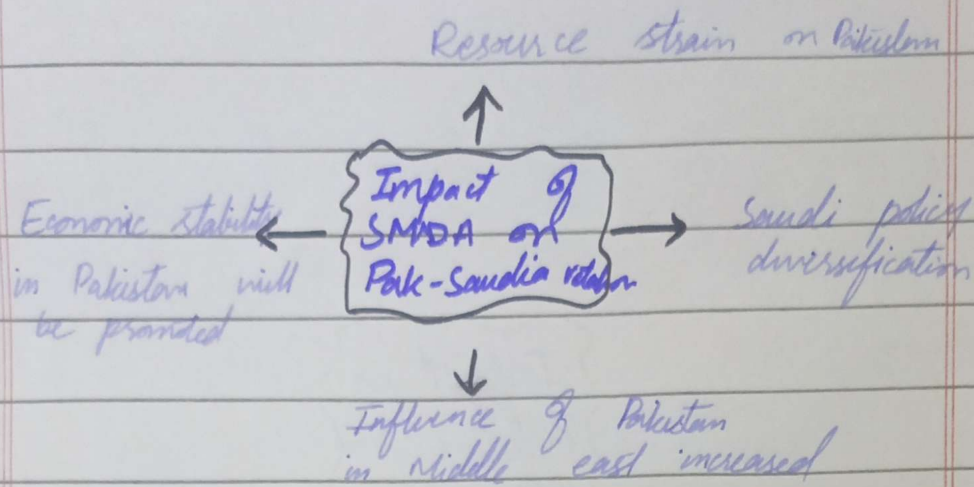 Resource strain on Pakistan
Impact of
SMDA on
Pak-Saudia relation
Economic stability
in Pakistan will
be promoted
Saudi policy
diversification
Influence of Pakistan
in Middle east increased